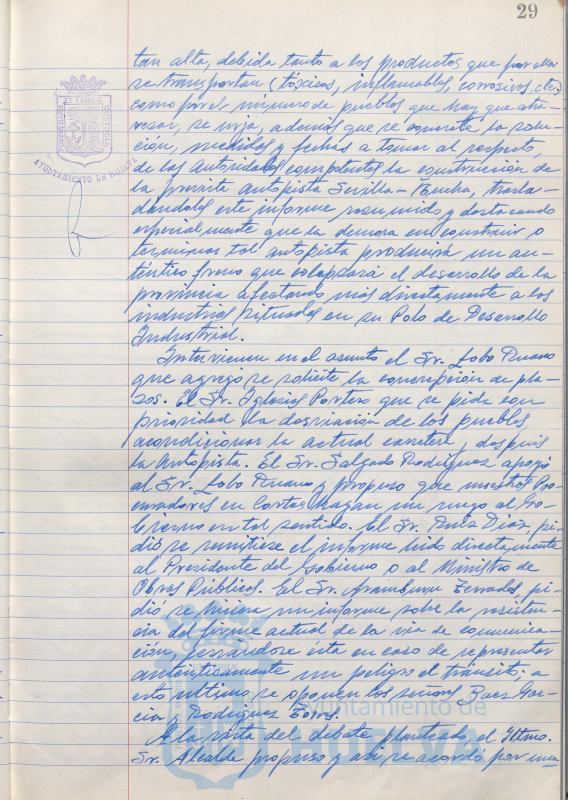 29
tan alta, debida tanto a los productos que por ella
se transportan (tóxicos, inflamables, corrosivos, etc.)
como por el número de pueblos que hay que atra-
vesar, se exija, además que se concrete la solu-
ción, medidas y fechas a tomar al respecto,
de las Autoridades competentes la construcción de
la prevista Autopista Sevilla-Huelva, trasla-
dándoles este informe resumido y destacando
especialmente que la demora en construir o
terminar tal autopista producirá un au-
téntico freno que colapsará el desarrollo de la
provincia afectando más directamente a las
industrias situadas en su Polo de Desarrollo
Industrial.
Intervienen en el asunto el Sr. Lobo
que agregó se solicite la concreción de pla-
zos. El Sr. Iglesias Portero que se pida con
prioridad la desviación de los pueblos,
acondicionar la actual carretera y después
la Autopista. El Sr. Salgado Rodríguez apoyó
al Sr. Lobo y propuso que nuestros Pro-
curadores en Cortes hagan un ruego al Go-
bierno en tal sentido. El Sr. Ruiz Díaz, pi-
dió se remitiese el informe leído directamente
al Presidente del Gobierno o al Ministro de
Obras Públicas. El Sr. Aramburu Terrades, pi-
dió se hiciera un informe sobre la resisten-
cia del firme actual de la vía de comunica-
ción, cerrándose ésta en caso de representar
auténticamente un peligro el tránsito; a
esto último se oponen los señores Baez Gar-
cía y Rodríguez
A la vista del debate planteado el Iltmo.
Sr. Alcalde propuso y así se acordó por una
AYUNTAMIENTO DE HUELVA
Ayuntamiento de
HUELVA